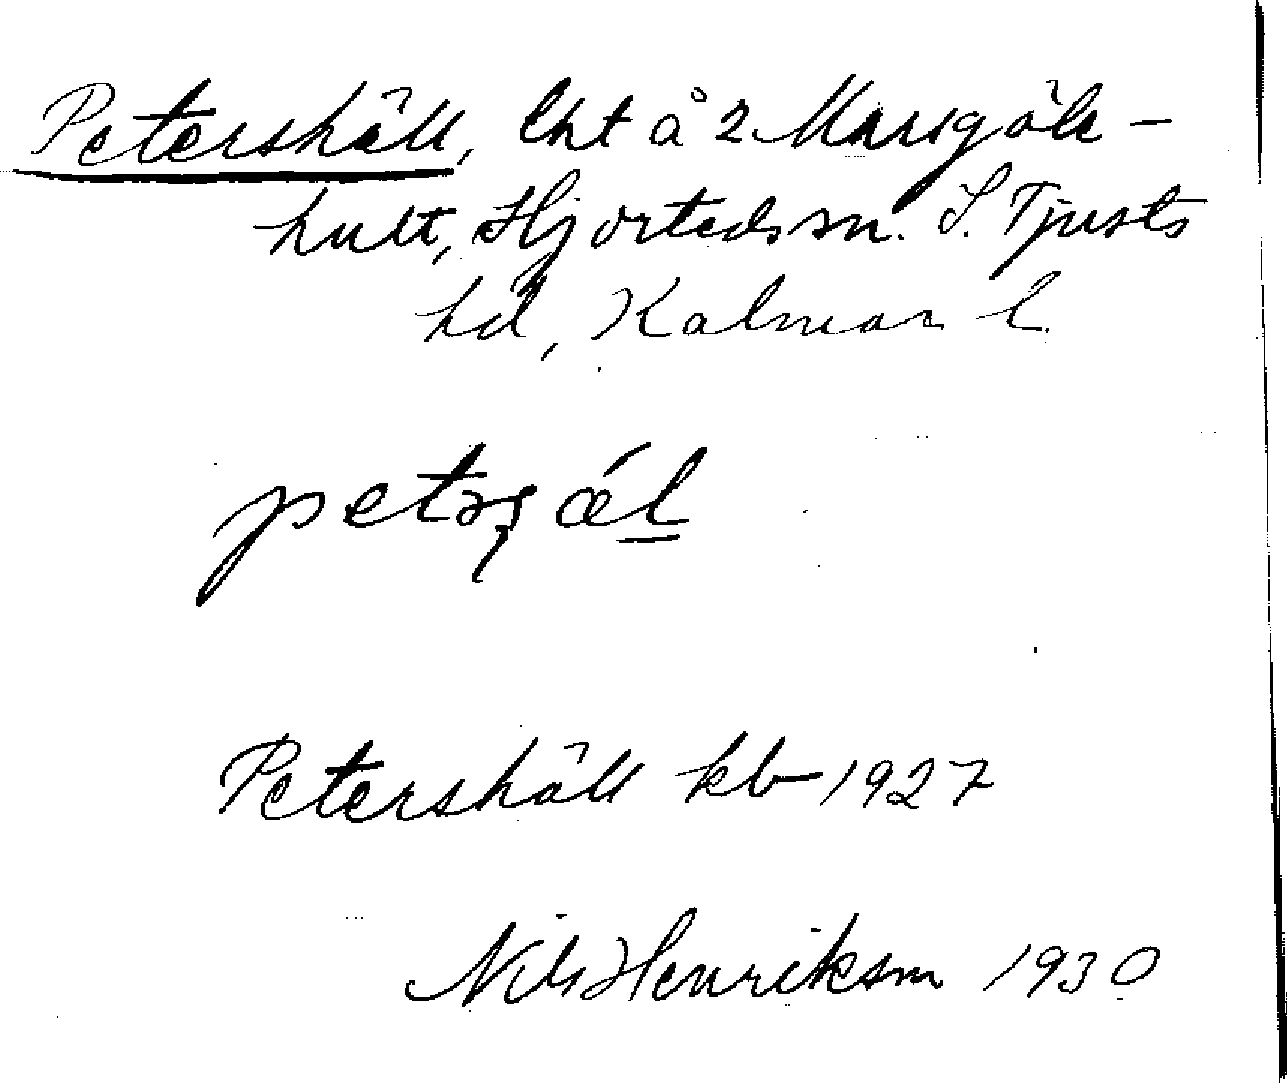 Petershäll, lht å 2 Margöle-
hult, Hjorteds sn. S. Tjusts
hd, Kalmar l.
petəʂǽl
Petershäll kb 1927
Nils Henriksson 1930